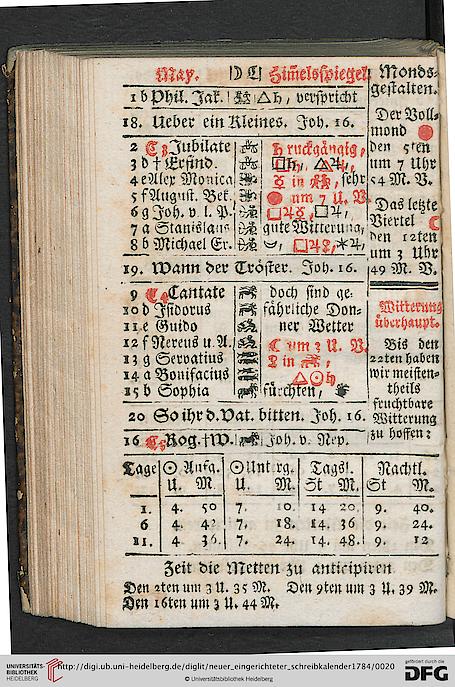 May. | D C | Himelsspiegel
1 b Phil. Jak. △♄, verspricht
18. Ueber ein Kleines. Joh. 16.
2 C Jubilate ♄ ruckgängig,
3 d † Erfind. □♄, △♃,
4 e Alex Monica ☿ in, sehr
5 f August. Bek. um 7 U. V.
6 g Joh. v. l. P. □♃☿, □♃,
7 a Stanislaus gute Witterung,
8 b Michael Er.
19. Wann der Tröster. Joh. 16.
9 C Cantate doch sind ge.
10 d Isidorus fährliche Don-
11 e Guido ner Wetter
12 f Nereus u. A. C um 3 U. V.
13 g Servatius in
14 a Bonifacius △☉♄
15 b Sophia fürchten,
20 So ihr d. Vat. bitten. Joh. 16.
16 C Rog. †W. Joh. v. Nep.
Monds-
gestalten.
Der Voll-
mond
den 5ten
um 7 Uhr
54 M. V.
Das letzte
Viertel C
den 12ten
um 3 Uhr
49 M. V.
Witterung
überhaupt.
Bis den
22ten haben
wir meisten-
theils
fruchtbare
Witterung
zu hoffen:
Tage | ☉ Aufg. | ☉ Unt rg. | Tagsl. | Nachtl.
U. M. | U. M. | St M. | St M.
1. 4. 50 7. 10. 14 20. 9. 40.
6 4. 42 7. 18. 14. 36 9. 24.
11. 4. 36. 7. 24. 14. 48. 9. 12
Zeit die Metten zu anticipiren
Den 2ten um 3 U. 35 M. Den 9ten um 3 U. 39 M.
Den 16ten um 3 U. 44 M.
UNIVERSITÄTS-
BIBLIOTHEK
HEIDELBERG
http://digi.ub.uni-heidelberg.de/diglit/neuer_eingerichteter_schreibkalender1784/0020
© Universitätsbibliothek Heidelberg
gefördert durch die
DFG